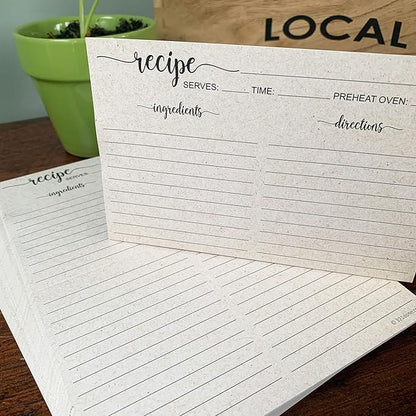 LOCAL
recipe
SERVES: TIME: PREHEAT OVEN:
ingredients directions
recipe
SERVES:
ingredients